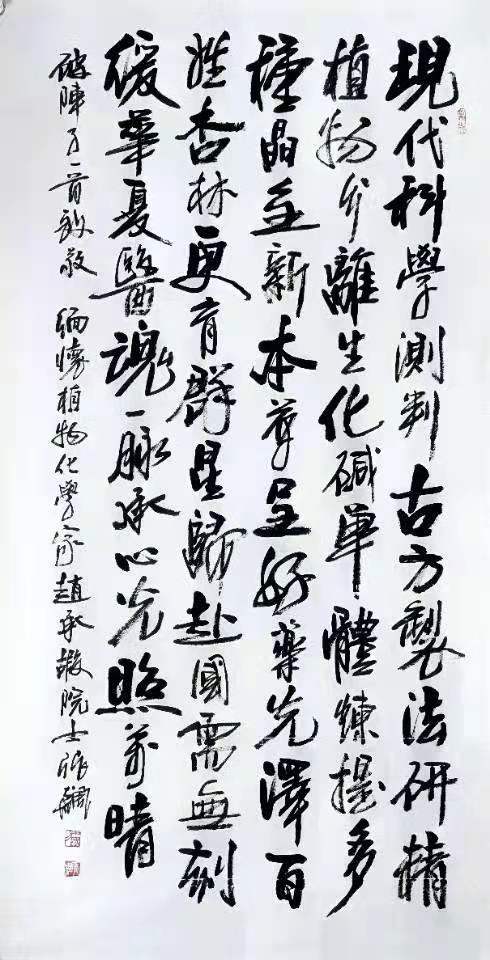 現代科學測判古方製法研精
植物分離生化碱单體鍊提多
種晶並新本草呈好藥光澤百
姓杏林更育群星歸赴國需無刻
缓華夏醫魂一脉承心光照萬晴
破陣子一首致敬 缅懷植物化學家趙承嘏院士張